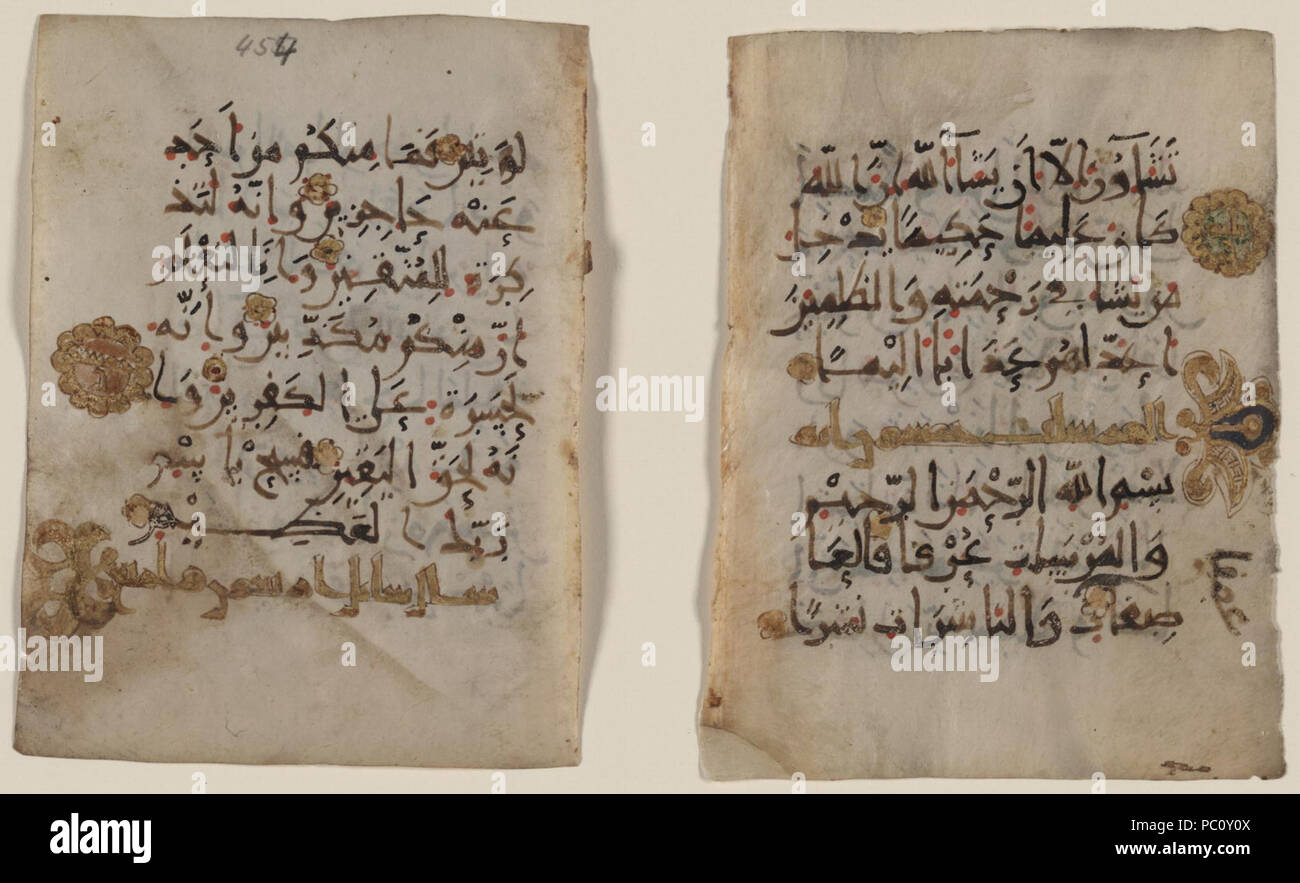 454
لْوَتِينَ فَمَا مِنكُم مِّنْ أَحَدٍ
عَنْهُ حَاجِزِينَ وَإِنَّهُ لَتَذْ
كِرَةٌ لِّلْمُتَّقِينَ وَإِنَّا لَنَعْلَمُ
أَنَّ مِنكُم مُّكَذِّبِينَ وَإِنَّهُ
لَحَسْرَةٌ عَلَى الْكَفِرِينَ وَإِ
نَّهُ لَحَقُّ الْيَقِينِ فَسَبِّحْ بِاسْمِ
رَبِّكَ الْعَظِيمِ
تَشَاءُونَ إِلَّا أَن يَشَاءَ اللَّهُ إِنَّ اللَّهَ
كَانَ عَلِيمًا حَكِيمًا يُدْخِلُ
مَن يَشَاءُ فِي رَحْمَتِهِ وَالظَّلِمِينَ
أَعَدَّ لَهُمْ عَذَابًا أَلِيمًا
المرسلت خمسون اية
بِسْمِ اللَّهِ الرَّحْمَنِ الرَّحِيمِ
وَالْمُرْسَلَاتِ عُرْفًا فَالْعَا
صِفَاتِ وَالنَّاشِرَاتِ نَشْرًا
alamy
Image ID: PC0Y0X
www.alamy.com